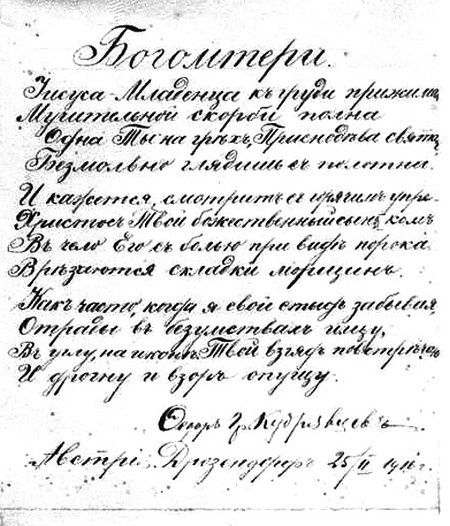 Богомтери.
Іисуса-Младенца къ груди прижимая,
Мучительной скорби полна
Одна Ты на грѣхъ, Приснодѣва святая,
Безмолвно глядишь съ полотна.
И кажется, смотритъ съ горячимъ упре-
Христосъ Твой божественный сынъ, комъ
Въ чело Его съ болью при видѣ порока
Врѣзаются складки морщинъ.
Какъ часто, когда я свой стыдъ забывая,
Отрады въ безумствахъ ищу,
Въ углу, на иконѣ Твой взглядъ повстрѣчаю
И дрогну и взоръ опущу.
Ѳедоръ Гр. Кудрявцевъ
Австрія. Дрозендорфъ 25/II 1916 г.